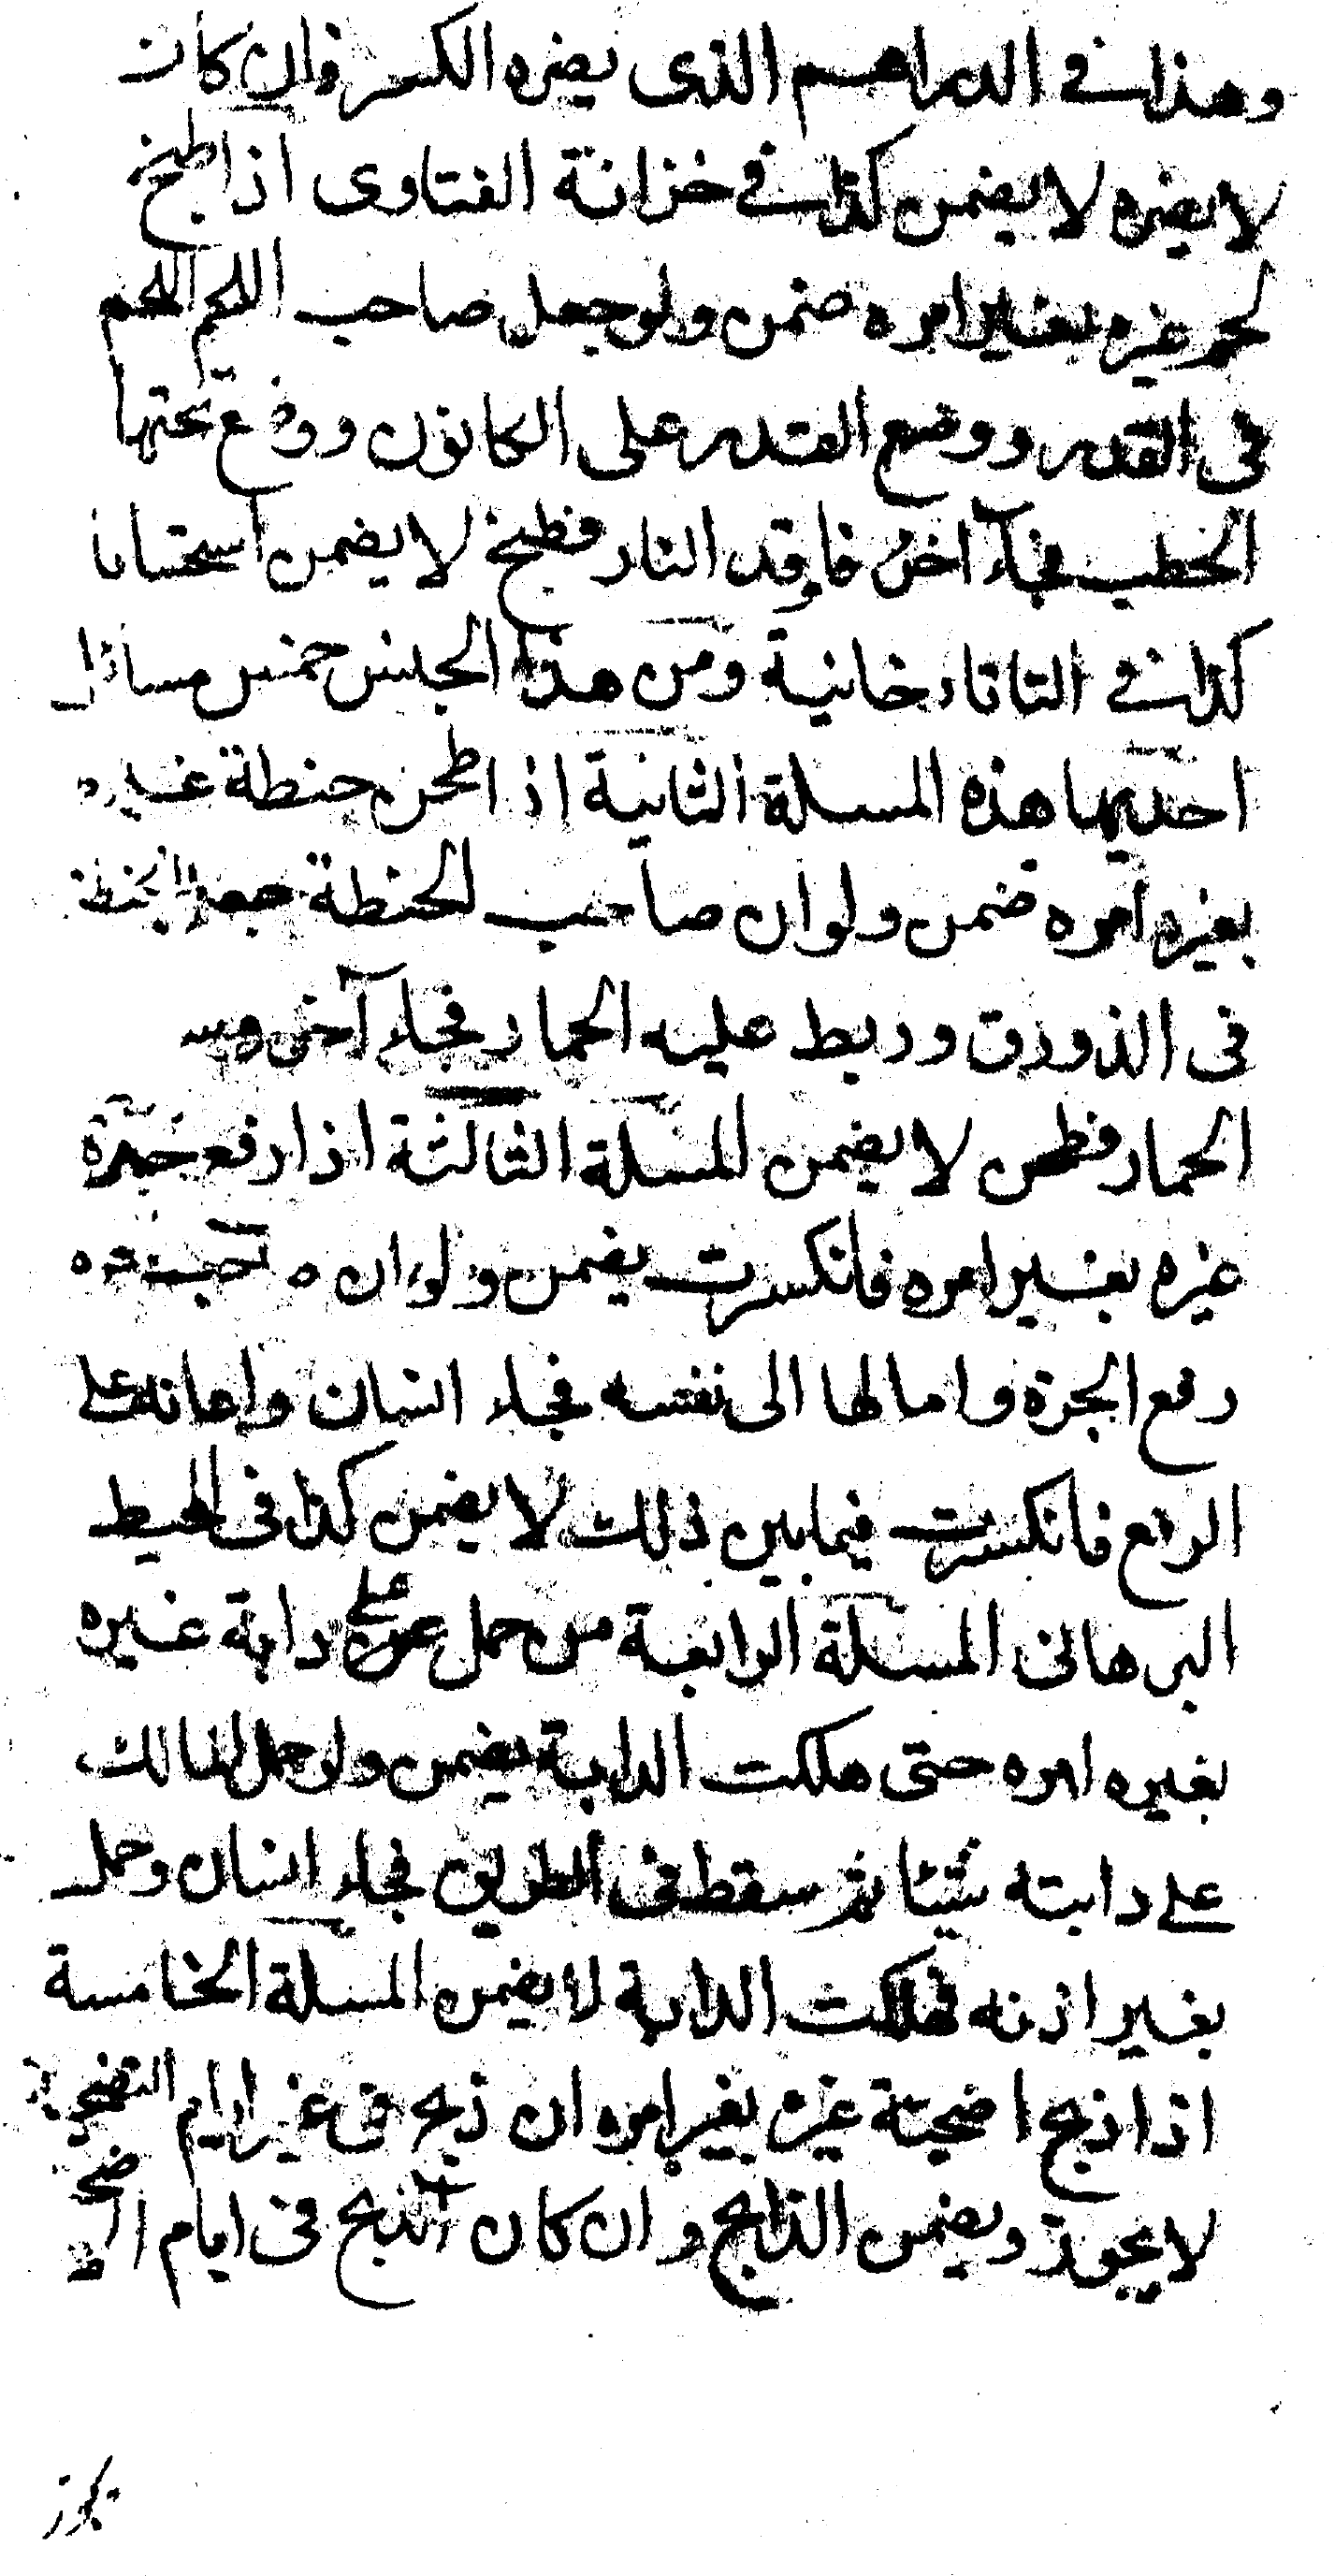 وهذا في الدراهم الذى يضره الكسر وان كان
لا يضره لا يضمن كذا في خزانة الفتاوى اذا طبخ
لحم غيره بغير امره ضمن ولو جعل صاحب اللحم اللحم
فى القدر ووضع القدر على الكانون ووضع تحتها
الحطب فجآء آخر فاوقد النار فطبخ لا يضمن استحسانا
كذا في التاتارخانية ومن هذا الجنس خمس مسائل
احديها هذه المسلة الثانية اذا طحن حنطة غيره
بغير امره ضمن ولو ان صاحب الحنطة جعل الحنطة
فى الذورق وربط عليه الحمار فجاء آخر وسـ
الحمار فطحن لا يضمن المسلة الثالثة اذا رفع جرة
غيره بغير امره فانكسرت يضمن ولو ان صاحب الجرة
رفع الجرة وامالها الى نفسه فجاء انسان واعانه على
الرفع فانكسرت فيما بين ذلك لا يضمن كذا فى المحيط
البرهانى المسلة الرابعة من حمل على دابة غيره
بغيره امره حتى هلكت الدابة يضمن ولو حمل المالك
على دابته شيئا ثم سقط فى الطريق فجاء انسان وحمل
بغير اذنه فهلكت الدابة لا يضمن المسلة الخامسة
اذا ذبح اضحية غيره بغير امره ان ذبح فى غير ايام التضحية
لا يجوز ويضمن الذابح وان كان الذبح فى ايام الاضحـ
تجوز